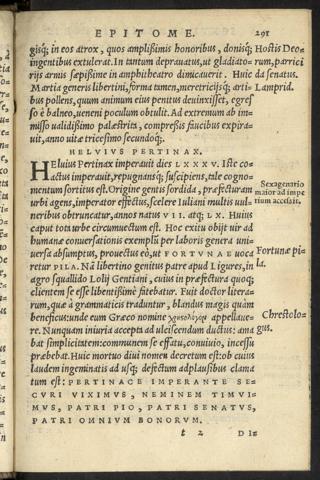 EPITOME. 291
gisq; in eos atrox, quos amplißimis honoribus, donisq; Hostis Deo-
ingentibus extulerat. In tantum deprauatus, ut gladiato- rum, parrici
rijs armis sæpißime in amphitheatro dimicauerit. Huic da senatus.
Martia generis libertini, forma tamen, meretricijsq; arti- Lamprid.
bus pollens, quum animum eius penitus deuinxisset, egres
so è balneo, ueneni poculum obtulit. Ad extremum ab im-
misso ualidißimo palæstrita, compreßis faucibus expira-
uit, anno uitæ tricesimo secundoq;.
HELVIVS PERTINAX.
Heluius Pertinax imperauit dies LXXXV. Iste co-
actus imperauit, repugnansq; suscipiens, tale cogno-
mentum sortitus est. Origine gentis sordida, præfecturam
urbi agens, imperator effectus, scelere Iuliani multis uul-
neribus obtruncatur, annos natus VII. atq; LX. Huius
caput tota urbe circumuectum est. Hoc exitu obijt uir ad
humanæ conuersationis exempli per laboris genera uni-
uersa absumptus, prouectus eò, ut FORTVNAE uoca
retur PILA. Nã libertino genitus patre apud Ligures, in
agro squallido Lolij Gentiani, cuius in præfectura quoq;
clientem se esse libentißimè fatebatur. Fuit doctor litera-
rum, quæ à grammaticis traduntur, blandus magis quàm
beneficus: unde eum Græco nomine χρηστολόγον appellaue-
re. Nunquam iniuria accepta ad ulciscendum ductus: ama
bat simplicitatem: communem se effatu, conuiuio, incessu
præbebat. Huic mortuo diui nomen decretum est: ob cuius
laudem ingeminatis ad usq; defectum adplausibus clama
tum est: PERTINACE IMPERANTE SE-
CVRI VIXIMVS, NEMINEM TIMVI-
MVS, PATRI PIO, PATRI SENATVS,
PATRI OMNIVM BONORVM.
t 2 DI-
Sexagenario
maior ad impe
rium accessit.
Fortunæ pi-
la.
Chrestolo-
gus.